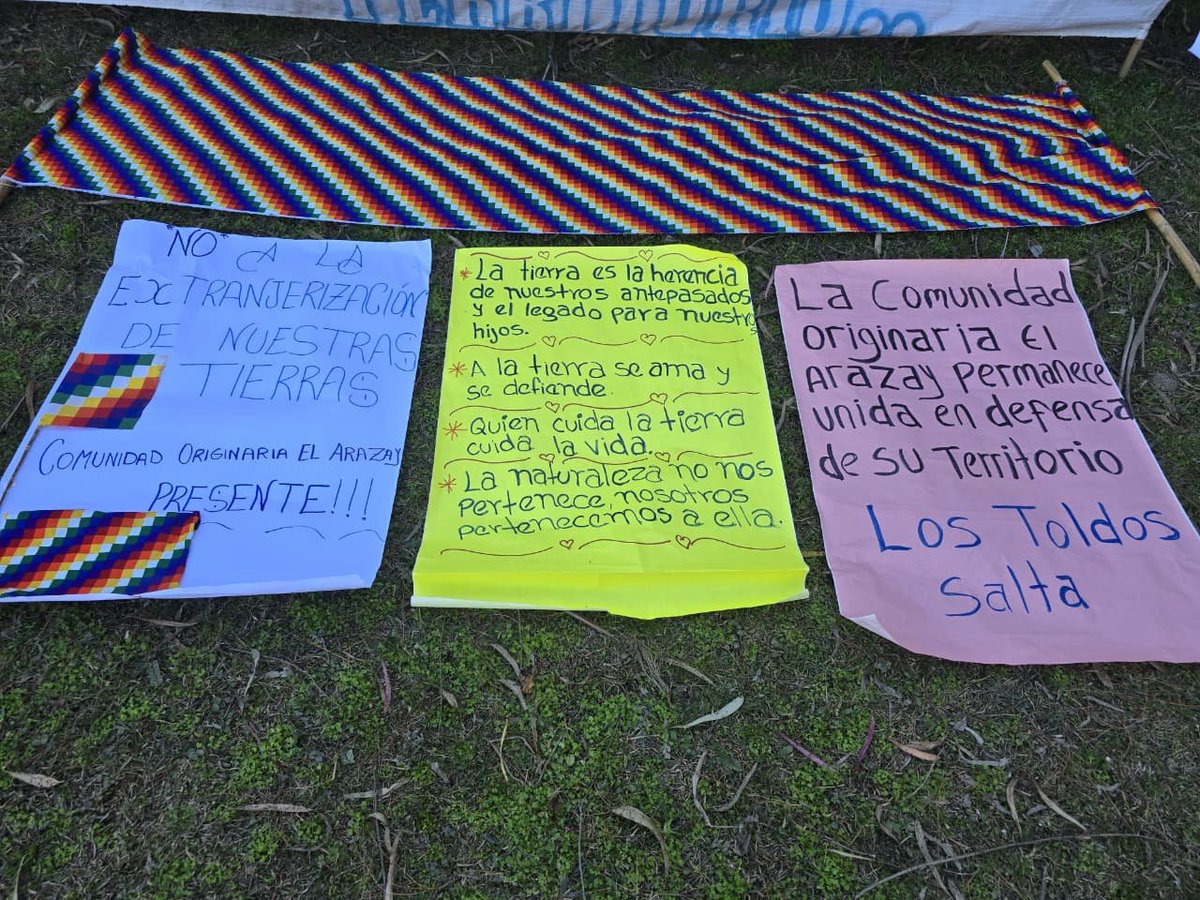 "NO" A LA
EXTRANJERIZACIÓN
DE NUESTRAS
TIERRAS
COMUNIDAD ORIGINARIA EL ARAZAY
PRESENTE!!!
* La tierra es la herencia
de nuestros antepasados
y el legado para nuestros
hijos.
* A la tierra se ama y
se defiande.
* Quien cuida la tierra
cuida la vida.
* La naturaleza no nos
pertenece, nosotros
pertenecemos a ella.
La Comunidad
originaria El
Arazay permanece
unida en defensa
de su Territorio
Los Toldos
Salta